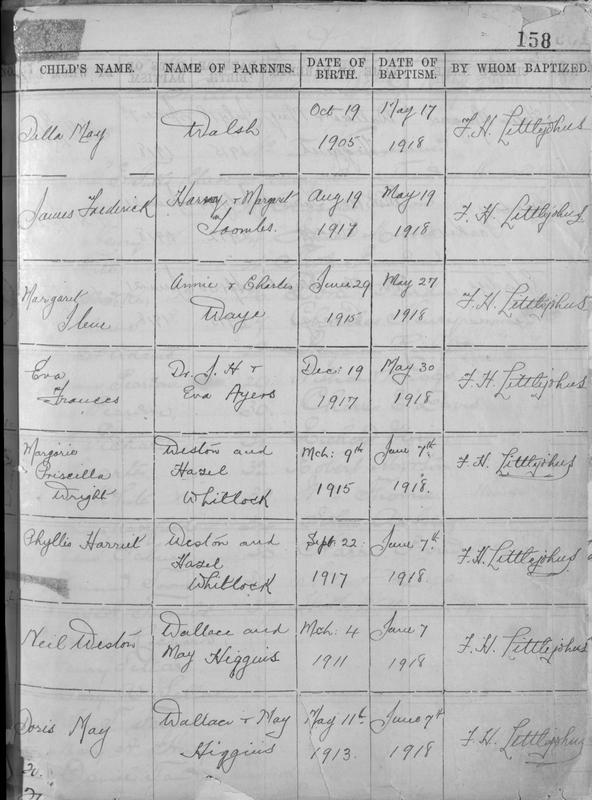 158
CHILD'S NAME. NAME OF PARENTS. DATE OF BIRTH. DATE OF BAPTISM. BY WHOM BAPTIZED.
Dalla May Walsh Oct 19 1905 May 17 1918 F. H. Littlejohns
James Frederick Harvey & Margaret Aug 19 1917 May 19 1918 F. H. Littlejohns
Margaret Ilene Annie & Charles Waye June 29 1915 May 27 1918 F. H. Littlejohns
Eva Frances Dr. J. H & Eva Ayers Dec: 19 1917 May 30 1918 F. H. Littlejohns
Margorie Priscilla Wright Weston and Hazel Whitlock Mch: 9th 1915 June 7th 1918. F. H. Littlejohns
Phyllis Harriet Weston and Hazel Whitlock Sept. 22 1917 June 7th 1918. F. H. Littlejohns
Neil Weston Wallace and May Higgins Mch: 4 1911 June 7 1918 F. H. Littlejohns
Doris May Wallace & May Higgins May 11th 1913. June 7th 1918 F. H. Littlejohns